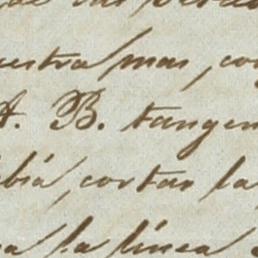 uestra mas, co
A. B. tangen
bia, cortar la
a la línea